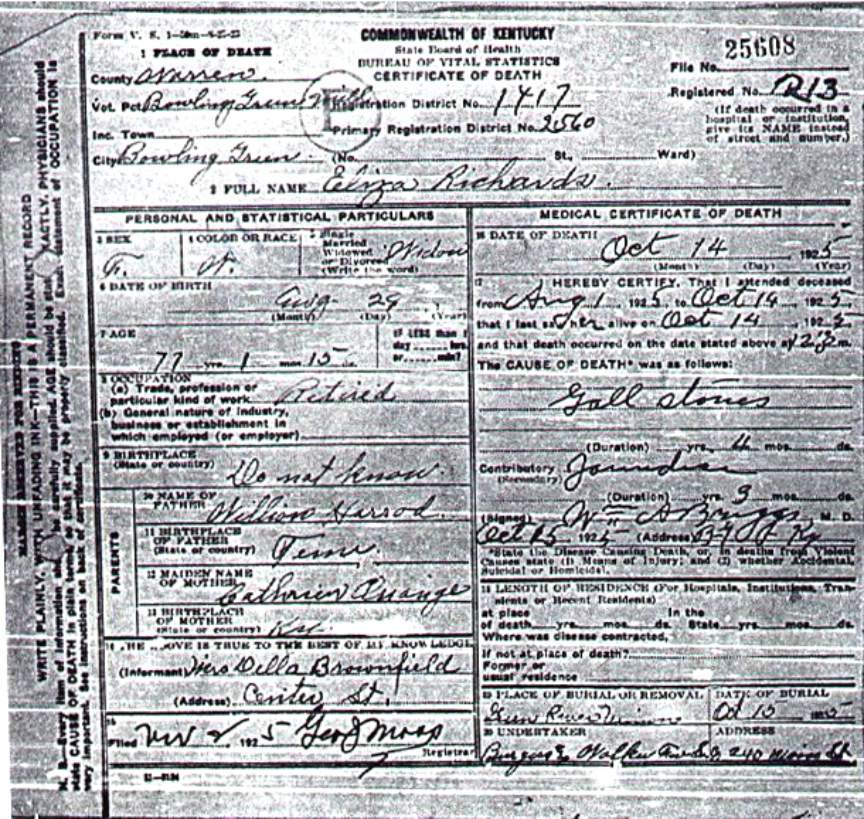 COMMONWEALTH OF KENTUCKY
State Board of Health
BUREAU OF VITAL STATISTICS
CERTIFICATE OF DEATH
Form V. S. 1
1 PLACE OF DEATH
County Warren
Vot. Pct Bowling Green
Inc. Town
City Bowling Green (No. St., Ward)
Registration District No. 1417
Primary Registration District No. 2560
File No. 25608
Registered No. 213
(If death occurred in a
hospital or institution,
give its NAME instead
of street and number.)
2 FULL NAME Eliza Richards
PERSONAL AND STATISTICAL PARTICULARS
3 SEX
F.
4 COLOR OR RACE
W.
5 Single
Married
Widowed
or Divorced
(Write the word)
Widow
6 DATE OF BIRTH
Aug 29
(Month) (Day) (Year)
7 AGE
77 yrs. 1 mos. 15
IF LESS than 1
day hrs.
or min?
8 OCCUPATION
(a) Trade, profession or
particular kind of work Retired
(b) General nature of industry,
business or establishment in
which employed (or employer)
9 BIRTHPLACE
(State or country)
Do not know
PARENTS
10 NAME OF
FATHER William Harrod
11 BIRTHPLACE
OF FATHER
(State or country) Tenn.
12 MAIDEN NAME
OF MOTHER Catherien
13 BIRTHPLACE
OF MOTHER
(State or country)
14 THE ABOVE IS TRUE TO THE BEST OF MY KNOWLEDGE
(Informant) Mrs Della Brownfield
(Address) Center St.
15
Filed Nov 2 1925 Geo J Moss
Registrar
MEDICAL CERTIFICATE OF DEATH
16 DATE OF DEATH
Oct 14 1925
(Month) (Day) (Year)
17 I HEREBY CERTIFY, That I attended deceased
from Aug 1, 1925, to Oct 14, 1925,
that I last saw her alive on Oct 14, 1925,
and that death occurred on the date stated above at m.
The CAUSE OF DEATH* was as follows:
Gall stones
(Duration) yrs. 4 mos. ds.
Contributory Jaundice
(Secondary)
(Duration) yrs. 3 mos. ds.
(Signed) Wm A Briggs M. D.
Oct 15 1925 (Address) Ky
*State the Disease Causing Death, or, in deaths from Violent
Causes state (1) Means of Injury; and (2) whether Accidental,
Suicidal or Homicidal.
18 LENGTH OF RESIDENCE (For Hospitals, Institutions, Transients
or Recent Residents)
at place In the
of death yrs. mos. ds. State yrs. mos. ds.
Where was disease contracted,
if not at place of death?
Former or
usual residence
19 PLACE OF BURIAL OR REMOVAL
Green River Union
DATE OF BURIAL
Oct 15 1925
20 UNDERTAKER
ADDRESS
MARGIN RESERVED FOR BINDING
WRITE PLAINLY, WITH UNFADING INK—THIS IS A PERMANENT RECORD